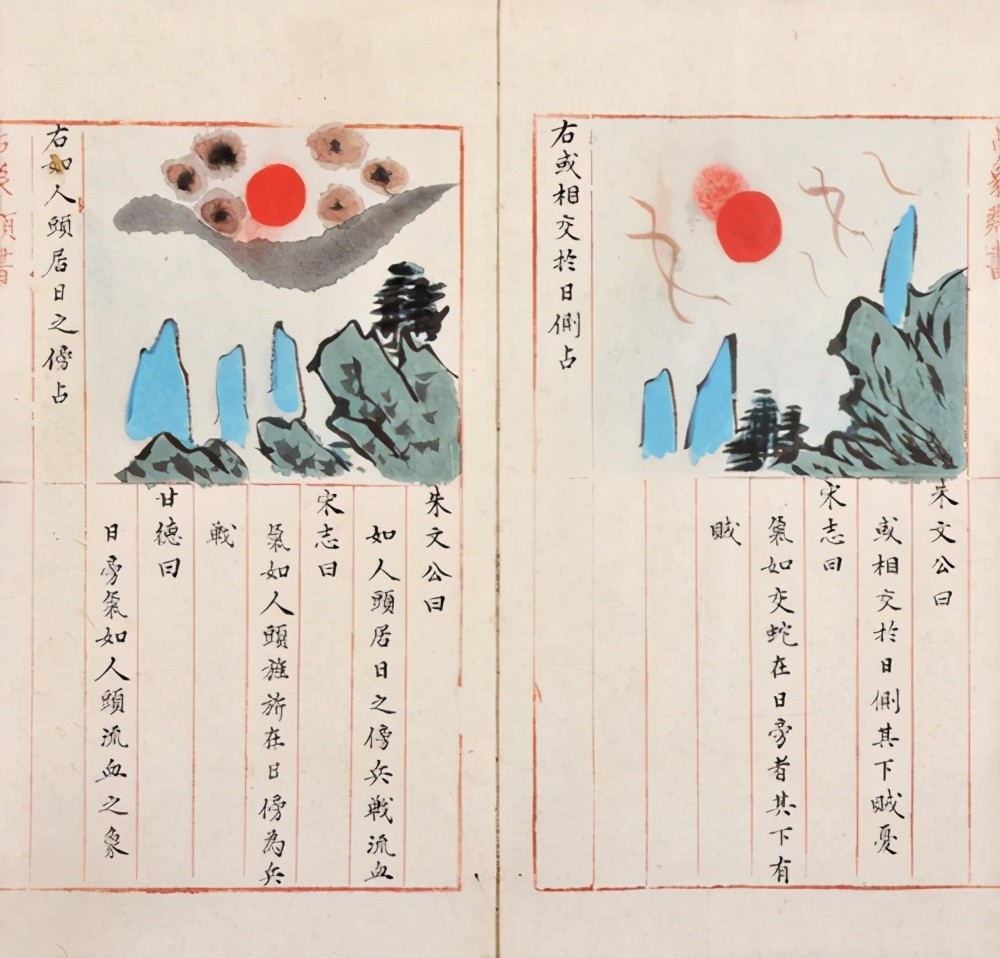 右或相交於日側占
朱文公曰
或相交於日側其下賊憂
宋志曰
氣如交蛇在日旁者其下有
賊
右如人頭居日之傍占
朱文公曰
如人頭居日之傍兵戰流血
宋志曰
氣如人頭旌旂在日傍為兵
戰
甘德曰
日旁氣如人頭流血之象